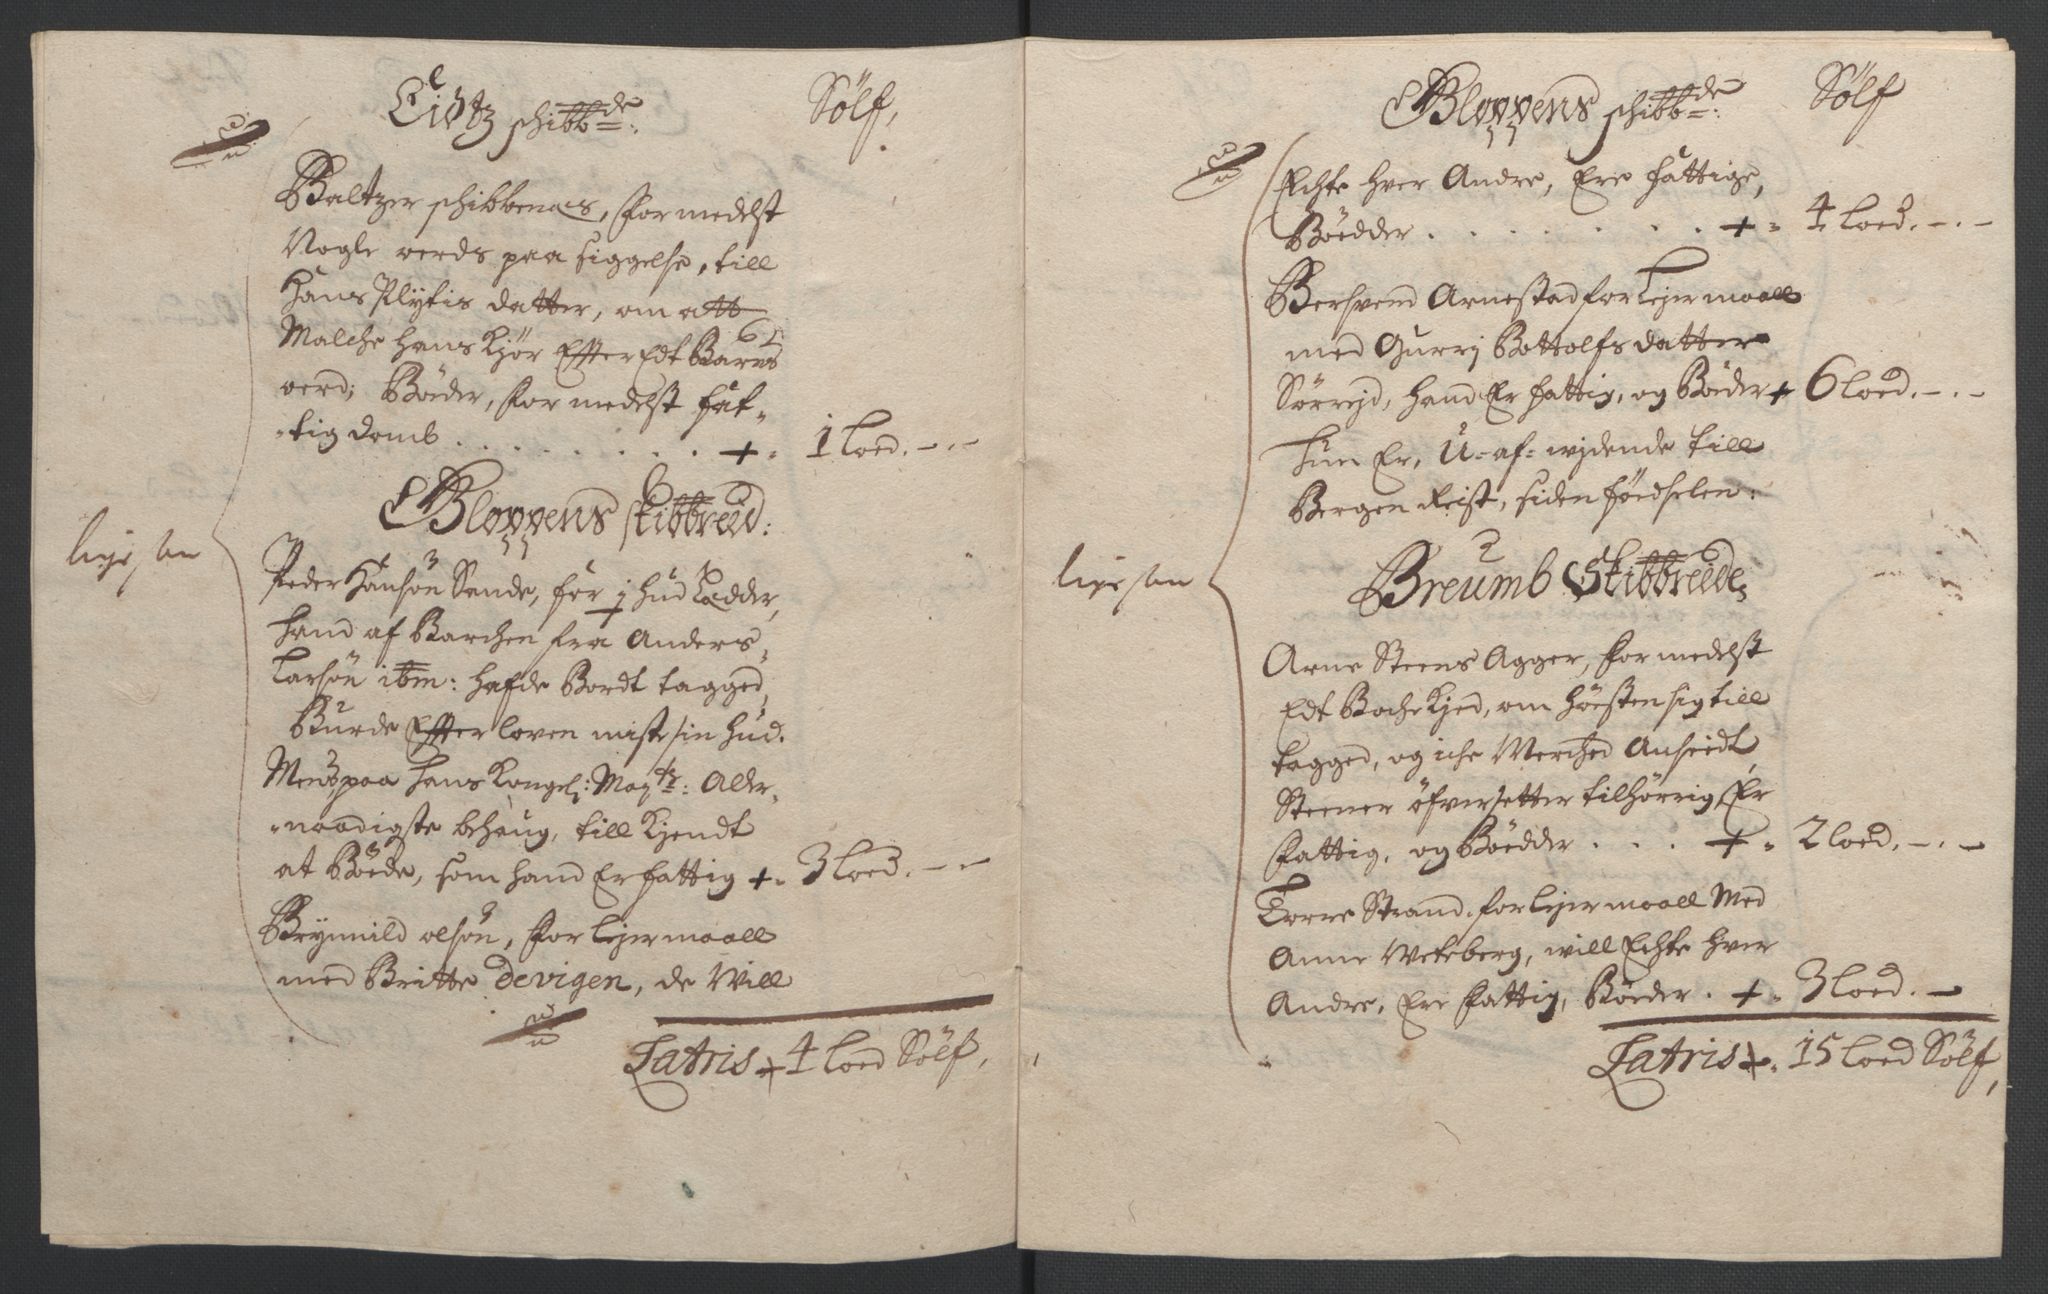 Eidtz schibbde: Sölf,
Baltzer schibbenæs, Formedelst
Nogle oerds paa siggelse, till
Hans Plytis datter, om att
Malche hans Kjør Effter Edt Barns
oerd; Bøder, Formedelst fat-
-tig domb . . . . . . . + - 1 loed. - . -
Gloppens skibbreid:
lige saa
Peder Hansøn Sande, for 1 hud Lædder,
hand af Barchen fra Anders
Larsøn ibm: hafde Bordt tagged,
Burde Effter loven miste sin hud.
Mens paa Hans Kongel: Maytz: Aller-
-naadigste behaug, till Kjendt
at Bøde, som hand Er fattig + - 3 loed. - . -
Brynnild olsøn, for lejermaall
med Britte Devigen, de Will
Latris + 4 loed Sölf,
Gloppens schibbde: Sölf
Echte hver Andre, Ere fattige,
Bødder . . . . . . . + - 4 loed. - . -
Bersvend Arnestad for lejermaall
med Gurrj Bottolfs datter
Sörrejd, hand Er fattig, og Bøder + 6 loed. - . -
hun Er, U-af-widende till
Bergen Reist, siden føedselen:
Breumb Skibbreide
lige saa
Arne Steens Agger, Formedelst
Edt Boche Kjed, om høesten sig till
tagged, og iche Merched Anseedt,
Steener öfversetter tilhörrig, Er
fattig, og Bødder . . . + - 2 loed. - . -
Torre Strand, for lejermaall Med
Anne Weteberg, will Echte hver
Andre, Ere fattig, Bøder . + - 3 loed. -
Latris + - 15 loed Sölf,